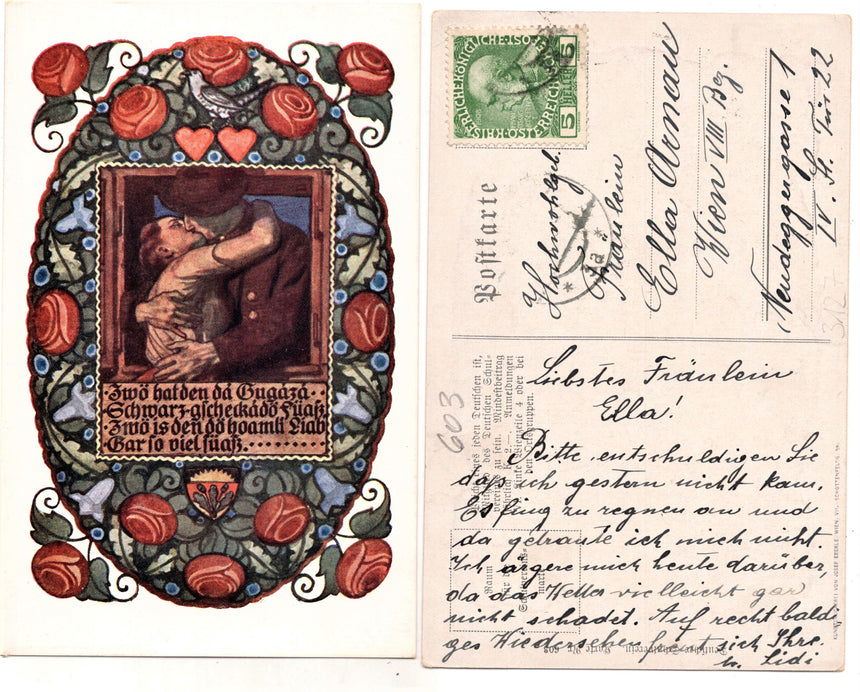 ·Zwö hat den dá Gugázá·
·Schwarz-gscheckádö Füaß,
·Zwö is den dö hoamli Liab
Gar so viel süaß..........
5 HELLER 5
Postkarte
Hochwohlgeb.
Fräulein
Ella Arnau
Wien VIII Bez.
Neudeggergasse 1
IV. St. Tür 22
603
eines jeden Deutschen ist,
des Deutschen Schul-
vereins zu sein. Mindestbeitrag
jährlich K 2.—. Anmeldungen
Linke Wienzeile 4 oder bei
den Ortsgruppen.
Liebstes Fräulein
Ella!
Bitte entschuldigen Sie
daß ich gestern nicht kam.
Es fing zu regnen an und
da getraute ich mich nicht.
Ich ärgere mich heute darüber,
da das Wetter vielleicht gar
nicht schadet. Auf recht baldi
ges Wiedersehen freut sich Ihre
Lidi
Raum
für die
Schulvereins-
marke
Deutscher Schulverein Karte Nr. 603
VON JOSEF EBERLE WIEN, VII. SCHOTTENFELDG.